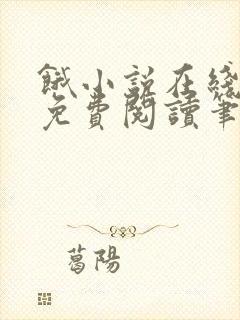 餓小說在綫
免費閱讀筆
葛陽